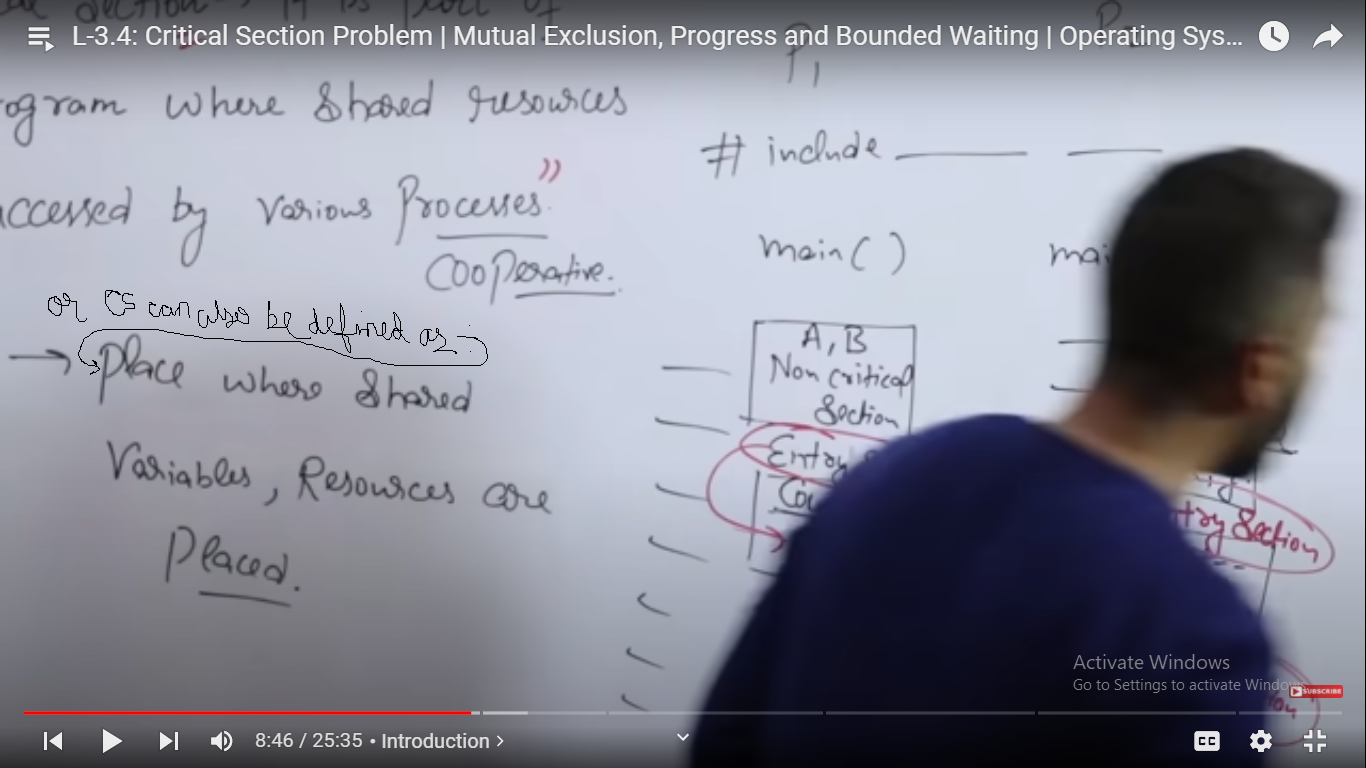 L-3.4: Critical Section Problem | Mutual Exclusion, Progress and Bounded Waiting | Operating Sys...
it is part of
ogram where shared resources
accessed by various Processes"
Cooperative.
or CS can also be defined as :-
→ Place where Shared
Variables, Resources are
Placed.
P1
# include
main( )
mai
A, B
Non critical
Section
Entry
Cou
try Section
Activate Windows
Go to Settings to activate Windows.
SUBSCRIBE
8:46 / 25:35 • Introduction >
CC